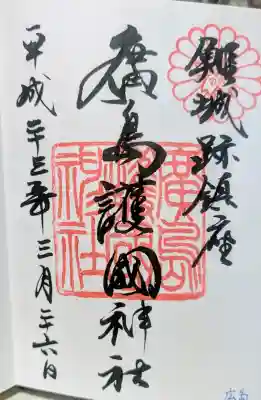 鯉城跡鎮座
廣島護國神社
平成二十三年三月二十六日
廣島護國神社
広島